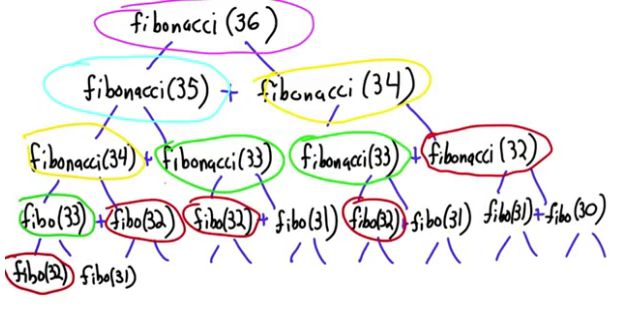 fibonacci (36)
fibonacci(35) + fibonacci (34)
fibonacci(34) + fibonacci(33) fibonacci(33) + fibonacci(32)
fibo(33) + fibo(32) fibo(32) + fibo(31) fibo(32) + fibo(31) fibo(31) + fibo(30)
fibo(32) fibo(31)